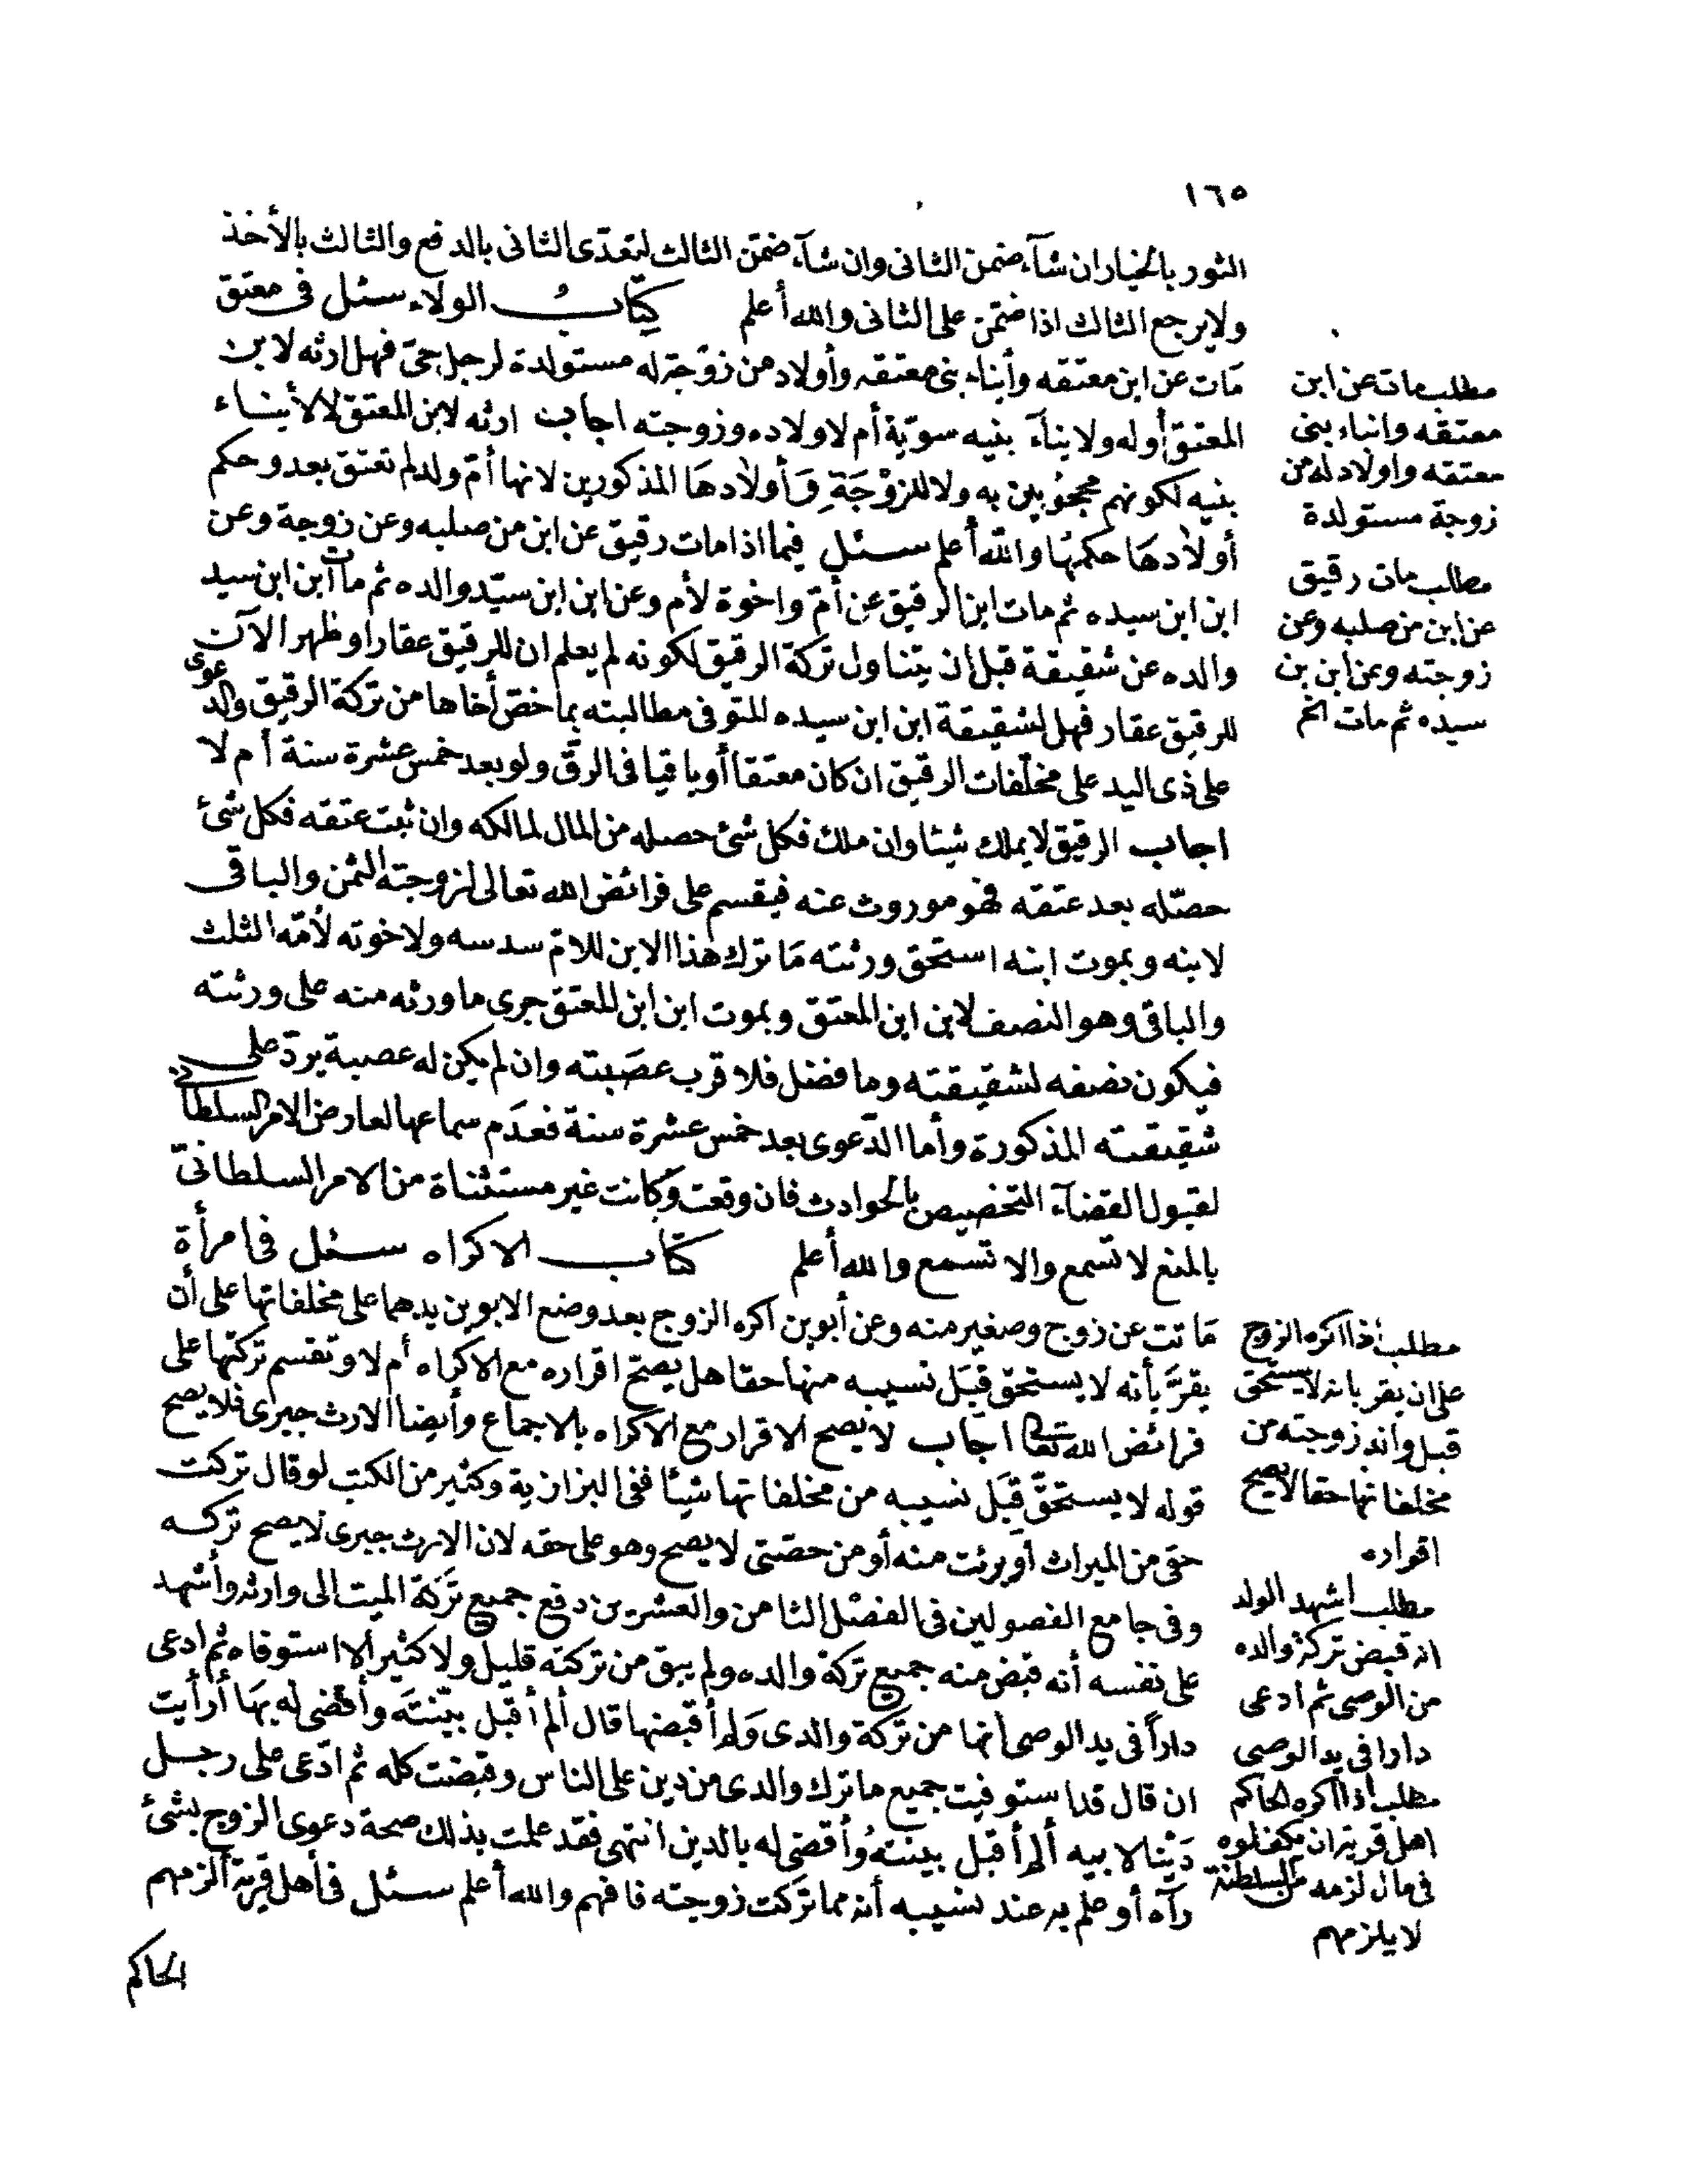 ١٦٥
الثور بالخيار ان شآء ضمن الثانى وان شآء ضمّن الثالث لتعدّى الثانى بالدفع والثالث بالأخذ
ولا يرجع الثالث اذا ضمّن على الثانى والله أعلم كِتَابُ الولآء سئل فى معتق
مَات عن ابن معتقه وأبناء بنى معتقه وأولاد من زوجة له مستولدة لرجل حىّ فهل ارثه لابن
المعتق أوله ولابنآء بنيه سويّة أم لاولاده وزوجته اجاب ارثه لابن المعتق لا لأبناء
بنيه لكونهم محجوُبين به ولا للزوْجَةِ وَأولادهَا المذكورين لانها أمّ ولد لم تعتق بعد وحكم
أولادهَا حكمهَا والله أعلم سئل فيما اذا مات رقيق عن ابن من صلبه وعن زوجة وعن
ابن ابن سيده ثم مات ابن الرقيق عن أمّ واخوة لأم وعن ابن ابن سيّد والده ثم مات ابن ابن سيد
والده عن شقيقة قبل ان يتناول تركة الرقيق لكونه لم يعلم ان للرقيق عقارا وظهر الآن
للرقيق عقار فهل لشقيقة ابن ابن سيده للمتوفى مطالبته بما خصّ أخاها من تركة الرقيق والدعوى
على ذى اليد على مخلّفات الرقيق ان كان معتقا أو باقيا فى الرقّ ولو بعد خمس عشرة سنة أم لا
اجاب الرقيق لا يملك شيئا وان ملك فكل شئ حصله من المال لمالكه وان ثبت عتقه فكل شئ
حصّله بعد عتقه فهو موروث عنه فيقسم على فرائض الله تعالى لزوجته الثمن والباقى
لابنه وبموت ابنه استحق ورثته مَا ترك هذا الابن للامّ سدسه ولاخوته لأمّه الثلث
والباقى وهو النصف لابن ابن المعتق وبموت ابن ابن المعتق جرى ما ورثه منه على ورثته
فيكون نصفه لشقيقته وما فضل فلاقرب عصَبته وان لم يكن له عصبة يردّ على
شقيقته المذكورة وأما الدّعوى بعد خمس عشرة سنة فعدَم سماعها لعارض الامر السلطانى
لقبول القضآء التخصيص بالحوادث فان وقعت وكانت غير مستثناة من الامر السلطانىّ
بالمنع لا تسمع والا تسمع والله أعلم كتاب الاكراه سئل فى امرأة
مَاتت عن زوج وصغير منه وعن أبوين اكره الزوج بعد وضع الابوين يدهما على مخلفاتها على أن
يقرّ بأنه لا يستحق قبَل نسيبه منها حقا هل يصحّ اقراره مع الاكراه أم لا وتقسم تركتها على
فرائض الله تعالى اجَاب لا يصح الاقرار مع الاكراه بالاجماع وأيضا الارث جبرى فلا يصح
قوله لا يستحقّ قبَل نسيبه من مخلفاتها شيئا ففى البزازية وكثير من الكتب لو قال تركت
حقى من الميراث أو برئت منه أو من حصّتى لا يصح وهو على حقه لان الارث جبرى لا يصح تركه
وفى جامع الفصولين فى الفصْل الثامن والعشرين دفع جميع تَركة الميت الى وارثه وأشهد
على نفسه أنه قبض منه جميع تركة والده ولم يبق من تركته قليل ولا كثير الا استوفاه ثم ادعى
داراً فى يد الوصى أنها من تركة والدى وَلم أقبضها قال ألم أقبل بيّنتَه وأقضى له بهَا أرأيت
ان قال قد استوفيت جميع ما ترك والدى من دين على الناس وقبضت كله ثم ادّعى على رجل
دَيْنا لابيه ألم أقبل بينتهُ وأقضى له بالدين انتهى فقد علمت بذلك صحة دعوى الزوج بشئ
رآه أو علم به عند نسيبه أنه مما تركت زوجته فافهم والله أعلم سئل فى أهل قرية ألزمهم
الحاكم
مطلب مات عن ابن
معتقه وابناء بنى
معتقه واولاد له من
زوجة مستولدة
مطلب مات رقيق
عن ابن من صلبه وعن
زوجته وعن ابن بن
سيده ثم مات الخ
مطلب اذا اكره الزوج
على ان يقر بانه لا يستحق
قبل والد زوجته من
مخلفاتها حقا لا يصح
اقراره
مطلب اشهد الولد
انه قبض تركة والده
من الوصى ثم ادعى
دارا فى يد الوصى
مطلب اذا اكره الحاكم
اهل قرية ان يكفلوه
فى مال لزمه من السلطنة
لا يلزمهم